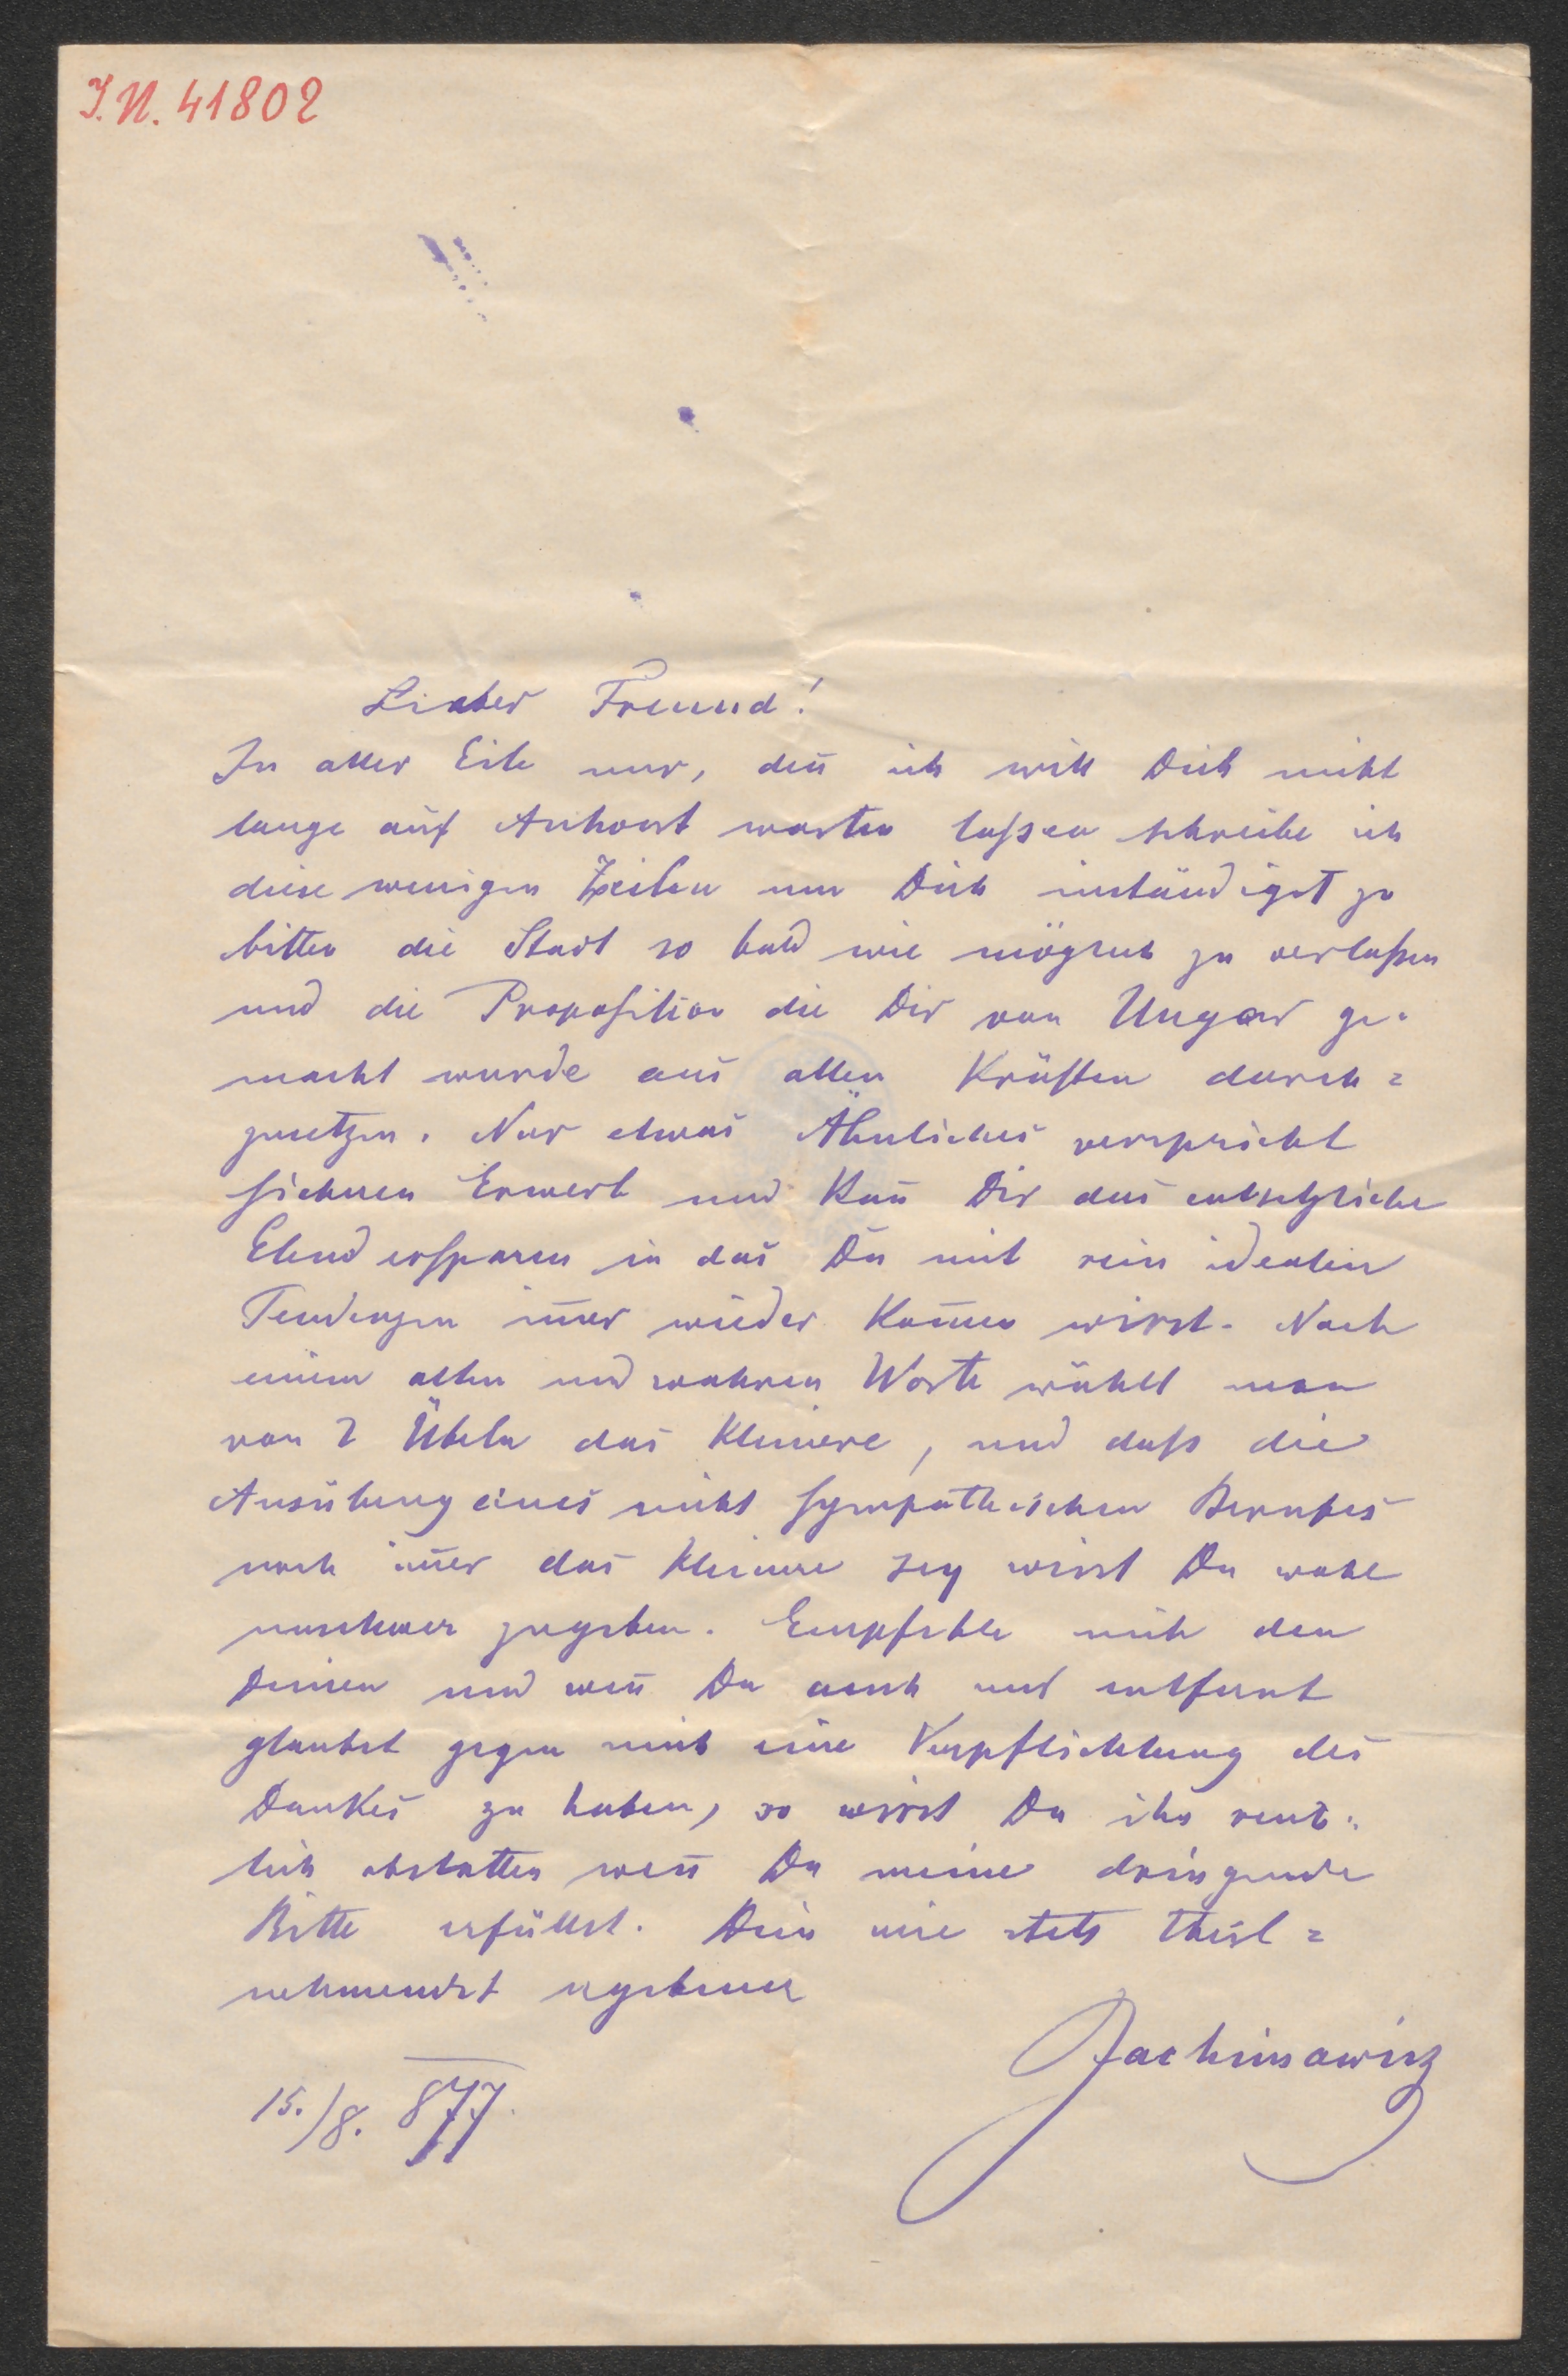 I.N. 41802
Lieber Freund!
In aller Eile nur, den̄ ich will Dich nicht
lange auf Antwort warten laſsen schreibe ich
diese wenigen Zeilen um Dich inständigst zu
bitten die Stadt so bald wie möglich zu verlaſsen
und die Proposition die Dir von Ungar ge-
macht wurde aus allen Kräften durch=
zusetzen. Nur etwas Ähnliches verspricht
sicheren Erwerb und kan̄ Dir das entsetzliche
Elend ersparen in das Du mit rein idealen
Tendenzen im̄er wieder kom̄en wirst. Nach
einem alten und wahren Worte wählt man
von 2 Übeln das kleinere, und daſs die
Ausübung eines nicht sympathischen Berufes
noch im̄er das kleinere sey wirst Du wohl
unschwer zugeben. Empfehle mich den
Deinen und wen̄ Du auch nur entfernt
glaubst gegen mich eine Verpflichtung des
Dankes zu haben, so wirst Du ihn reich-
lich abstatten wen̄ Du meine dringende
Bitte erfüllst. Dein wie stets theil=
nehmendst ergebener
Jachimowicz
15./8. 877.